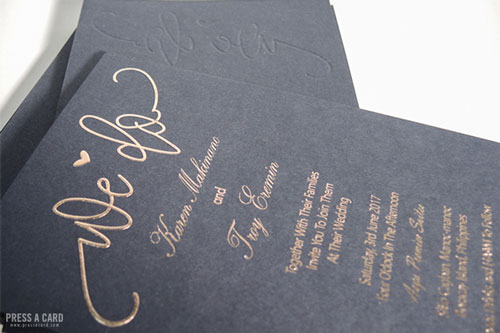 We do
Karen Makinano
and
Troy Eremin
Together With Their Families
Invite You To Join Them
At Their Wedding
Saturday, 3rd June 2017
Four O'clock In The Afternoon
Philippines
PRESS A CARD
www.pressacard.com